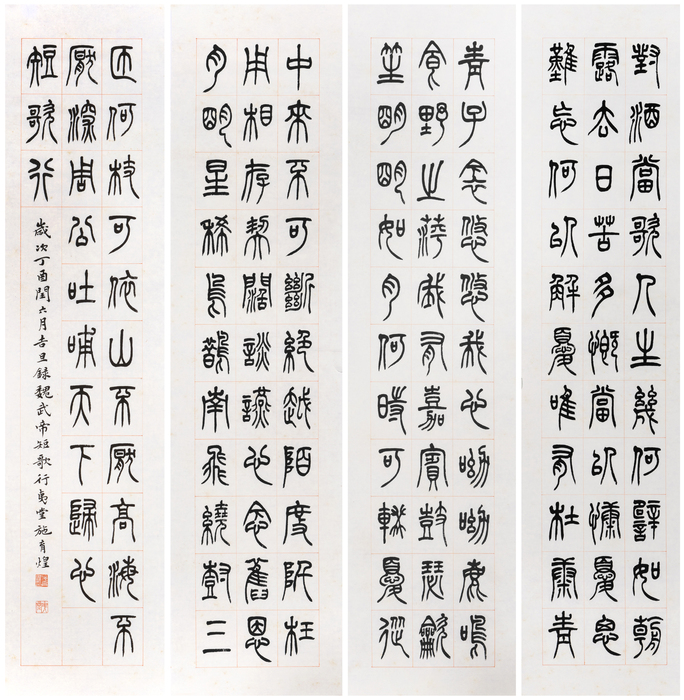 對酒當歌人生幾何譬如朝
露去日苦多慨當以慷憂思
難忘何以解憂唯有杜康青
青子衿悠悠我心呦呦鹿鳴
食野之蘋我有嘉賓鼓瑟龡
笙明明如月何時可輟憂從
中來不可斷絕越陌度阡枉
用相存契闊談讌心念舊恩
月明星稀烏鵲南飛繞樹三
匝何枝可依山不厭高海不
厭深周公吐哺天下歸心
短歌行
歲次丁酉閏六月吉旦錄魏武帝短歌行夷堂施育煌